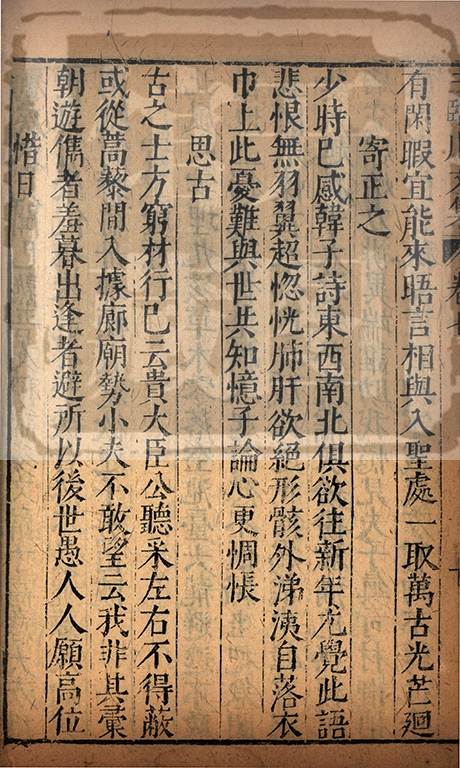 有閑暇宜能來晤言相與入聖處一取萬古光芒廻
寄正之
少時已感韓子詩東西南北俱欲往新年尤覺此語
悲恨無羽翼超惚恍肺肝欲絕形骸外涕洟自落衣
巾上此憂難與世共知憶子論心更惆悵
思古
古之士方窮材行已云貴大臣公聽采左右不得蔽
或從蒿藜間入據廊廟勢小夫不敢望云我非其彙
朝遊儁者羞暮出逢者避所以後世愚人人願高位
惜日